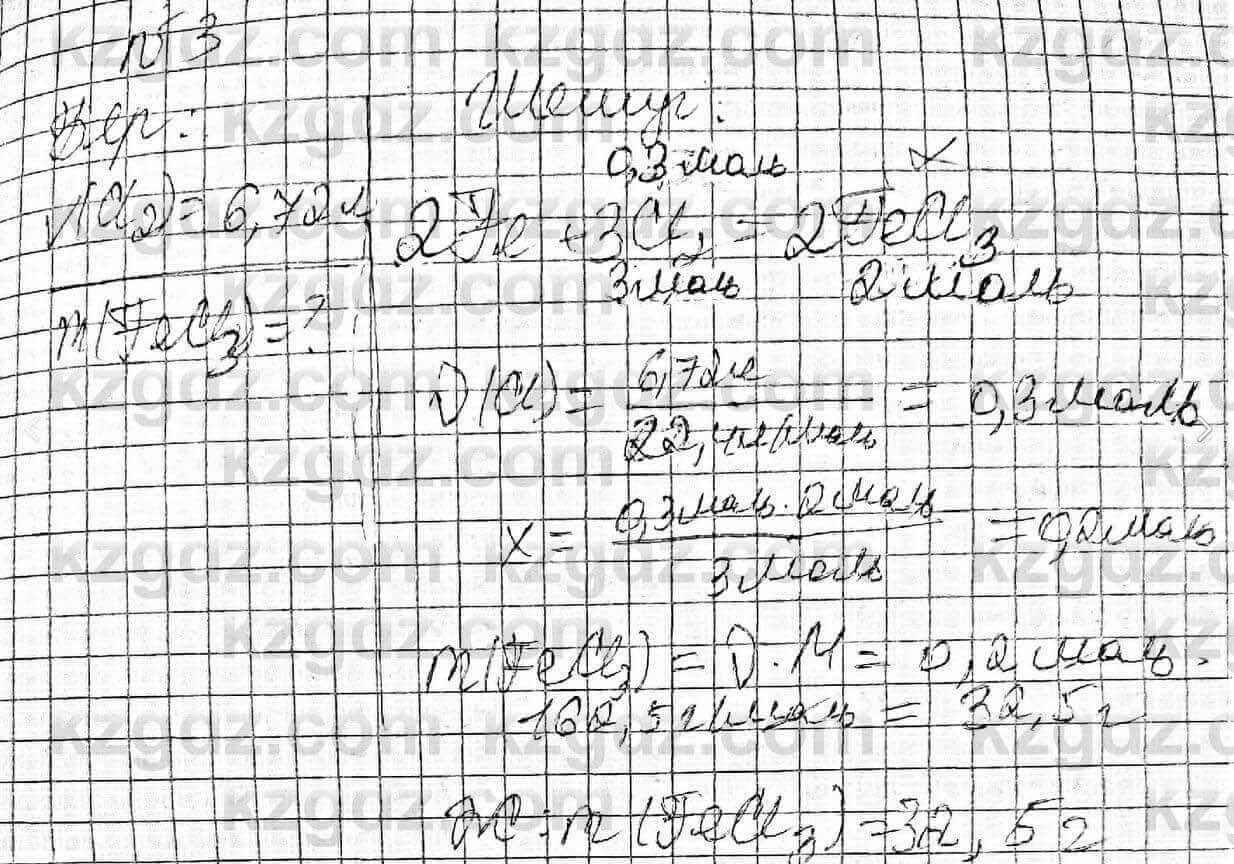 №3
Бер: Шешуі:
0,3 моль x
V(Cl2)=6,72л 2Fe+3Cl2=2FeCl3
3моль 2моль
m(FeCl3)=?
ν(Cl2)= 6,72л / 22,4л/моль = 0,3моль
x= 0,3моль·2моль / 3моль =0,2моль
m(FeCl3)=ν·M=0,2моль·
162,5г/моль=32,5г
m(FeCl3)=32,5г
kzgdz.com